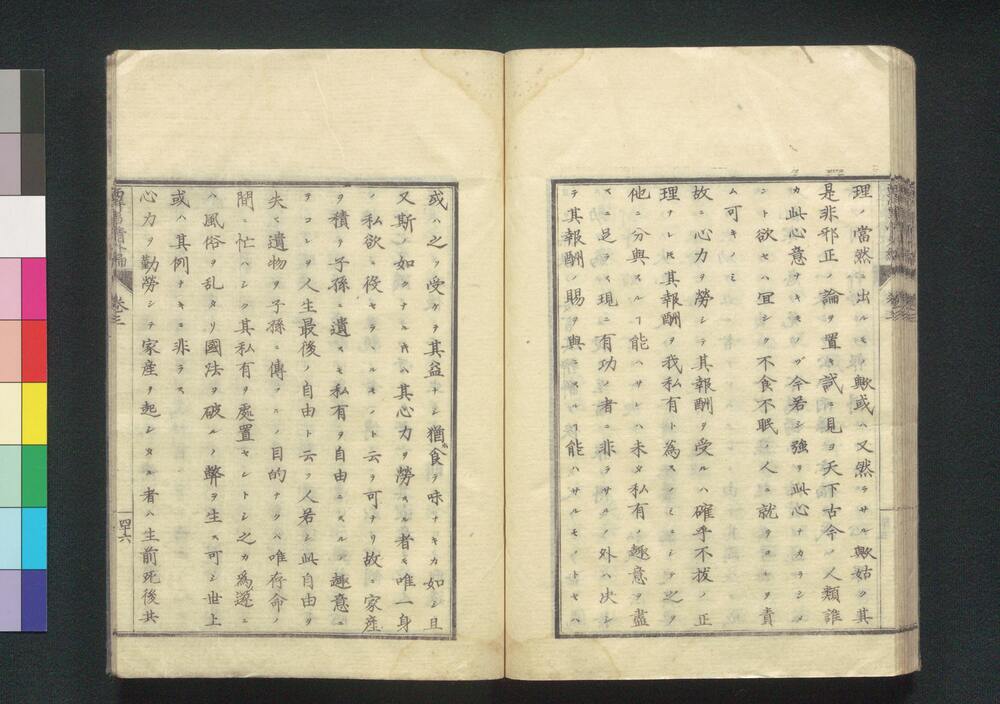 理ノ當然ニ出ルモノ歟或ハ又然ラサル歟姑ク其
是非邪正ノ論ヲ置キ試ニ見ヨ天下古今ノ人類誰
カ此心意ナキモノゾ今若シ強ヲ此心ナカラシメ
ント欲セハ宜シク不食不眠ノ人ニ就テコレヲ責
ム可キノミ
故ニ心力ヲ勞シテ其報酬ヲ受ルハ確乎不拔ノ正
理ナレ𪜈其報酬ヲ我私有ト為スノミニシテ之ヲ
他ニ分與スルヿ能ハサレハ未タ私有ノ趣意ヲ盡
スニ足ラス現ニ有功ノ者ニ非ラサルノ外ハ決シ
テ其報酬ノ賜ヲ與ニスルヿ能ハサルモノトセハ
或ハ之ヲ受ケテ其益ナシ猶食テ味ナキカ如シ且
又斯ノ如クナル𪜈ハ其心力ヲ勞スル者モ唯一身
ノ私欲ニ役セラルヽモノト云ヲ可ナリ故ニ家産
ヲ積テ子孫ニ遺スモ私有ヲ自由ニスルノ趣意ニ
テコレヲ人生最後ノ自由ト云フ人若シ此自由ヲ
失ヒ遺物ヲ子孫ニ傳フルノ目的ナクハ唯存命ノ
間ニ忙ハシク其私有ヲ處置セントシ之カ為遂ニ
ハ風俗ヲ乱タリ國法ヲ破ルノ弊ヲ生ス可シ世上
或ハ其例ナキニ非ラス
心力ヲ勤勞シテ家産ヲ起シタル者ハ生前死後共
卷之三
四十六